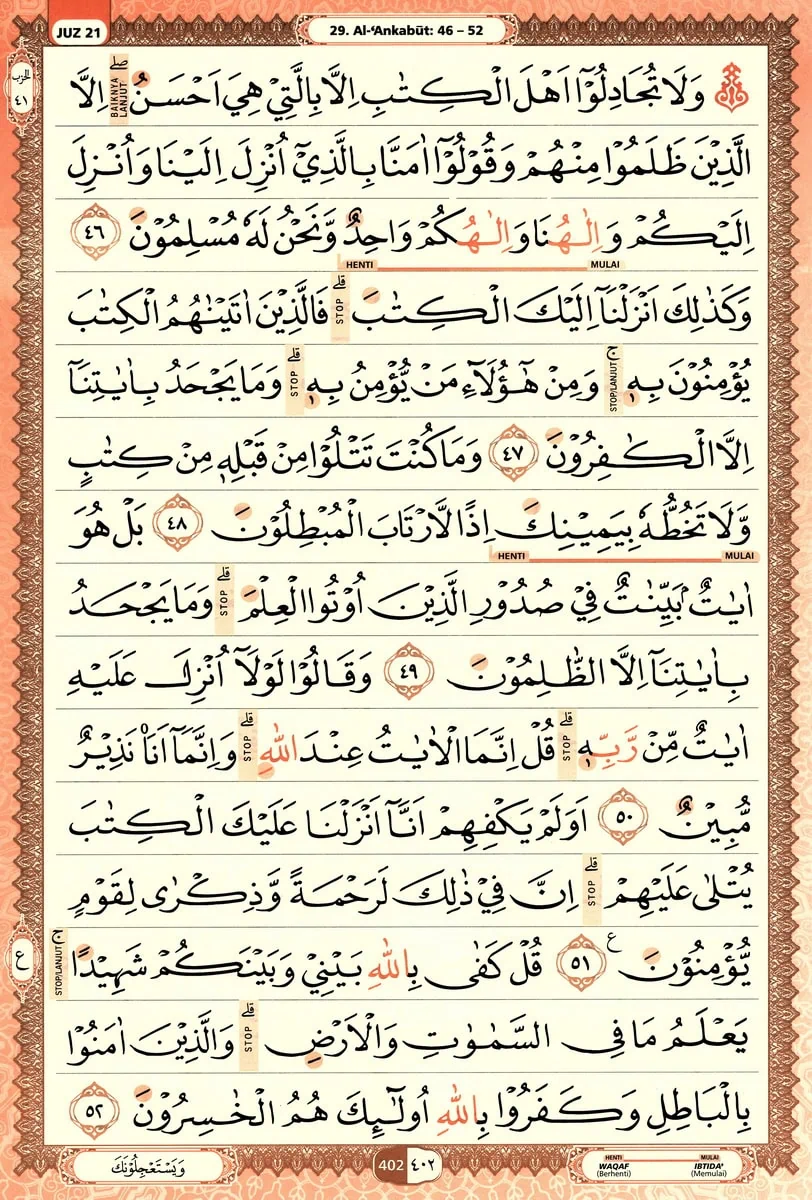 JUZ 21
29. Al-‘Ankabūt: 46 – 52
الحزب
٤١
وَلَا تُجَادِلُوْٓا اَهْلَ الْكِتٰبِ اِلَّا بِالَّتِيْ هِيَ اَحْسَنُ صلى BAIKNYA LANJUT اِلَّا
الَّذِيْنَ ظَلَمُوْا مِنْهُمْ وَقُوْلُوْٓا اٰمَنَّا بِالَّذِيْٓ اُنْزِلَ اِلَيْنَا وَاُنْزِلَ
اِلَيْكُمْ وَاِلٰهُنَا وَاِلٰهُكُمْ وَاحِدٌ وَّنَحْنُ لَهٗ مُسْلِمُوْنَ ٤٦
HENTI MULAI
وَكَذٰلِكَ اَنْزَلْنَآ اِلَيْكَ الْكِتٰبَ قلى STOP فَالَّذِيْنَ اٰتَيْنٰهُمُ الْكِتٰبَ
يُؤْمِنُوْنَ بِهٖ ج STOP/LANJUT وَمِنْ هٰٓؤُلَاۤءِ مَنْ يُّؤْمِنُ بِهٖ قلى STOP وَمَا يَجْحَدُ بِاٰيٰتِنَآ
اِلَّا الْكٰفِرُوْنَ ٤٧ وَمَا كُنْتَ تَتْلُوْا مِنْ قَبْلِهٖ مِنْ كِتٰبٍ
وَّلَا تَخُطُّهٗ بِيَمِيْنِكَ اِذًا لَّارْتَابَ الْمُبْطِلُوْنَ ٤٨ بَلْ هُوَ
HENTI MULAI
اٰيٰتٌۢ بَيِّنٰتٌ فِيْ صُدُوْرِ الَّذِيْنَ اُوْتُوا الْعِلْمَ قلى STOP وَمَا يَجْحَدُ
بِاٰيٰتِنَآ اِلَّا الظّٰلِمُوْنَ ٤٩ وَقَالُوْا لَوْلَآ اُنْزِلَ عَلَيْهِ
اٰيٰتٌ مِّنْ رَّبِّهٖ قلى STOP قُلْ اِنَّمَا الْاٰيٰتُ عِنْدَ اللّٰهِ قلى STOP وَاِنَّمَآ اَنَا۠ نَذِيْرٌ
مُّبِيْنٌ ٥٠ اَوَلَمْ يَكْفِهِمْ اَنَّآ اَنْزَلْنَا عَلَيْكَ الْكِتٰبَ
يُتْلٰى عَلَيْهِمْ قلى STOP اِنَّ فِيْ ذٰلِكَ لَرَحْمَةً وَّذِكْرٰى لِقَوْمٍ
يُّؤْمِنُوْنَ ع ٥١ قُلْ كَفٰى بِاللّٰهِ بَيْنِيْ وَبَيْنَكُمْ شَهِيْدًا ج STOP/LANJUT
ع
يَعْلَمُ مَا فِى السَّمٰوٰتِ وَالْاَرْضِ قلى STOP وَالَّذِيْنَ اٰمَنُوْا
بِالْبَاطِلِ وَكَفَرُوْا بِاللّٰهِ اُولٰۤىِٕكَ هُمُ الْخٰسِرُوْنَ ٥٢
وَيَسْتَعْجِلُوْنَكَ
402 ٤٠٢
HENTI MULAI
WAQAF IBTIDA'
(Berhenti) (Memulai)